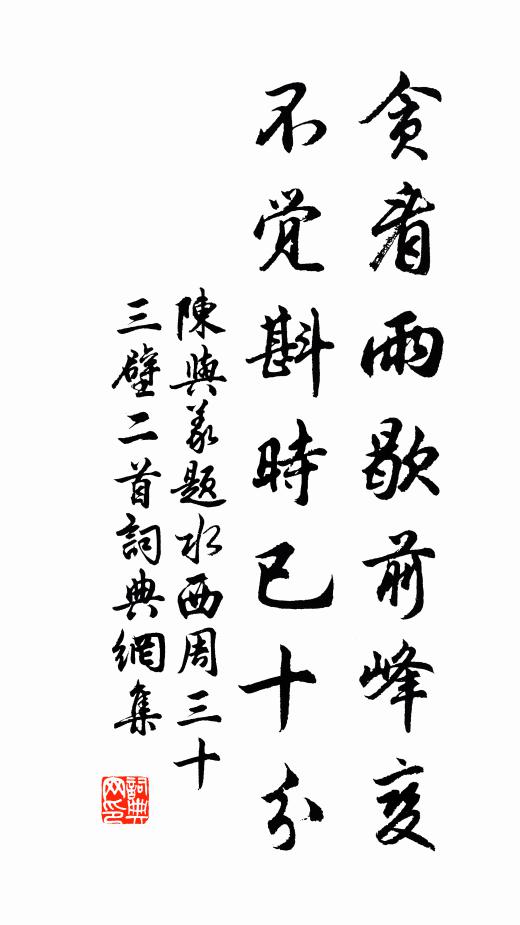 贪看雨歇前峰变
不觉斟時已十分
陳與義题水西周三十
三壁二首詞典網集
詞典网印